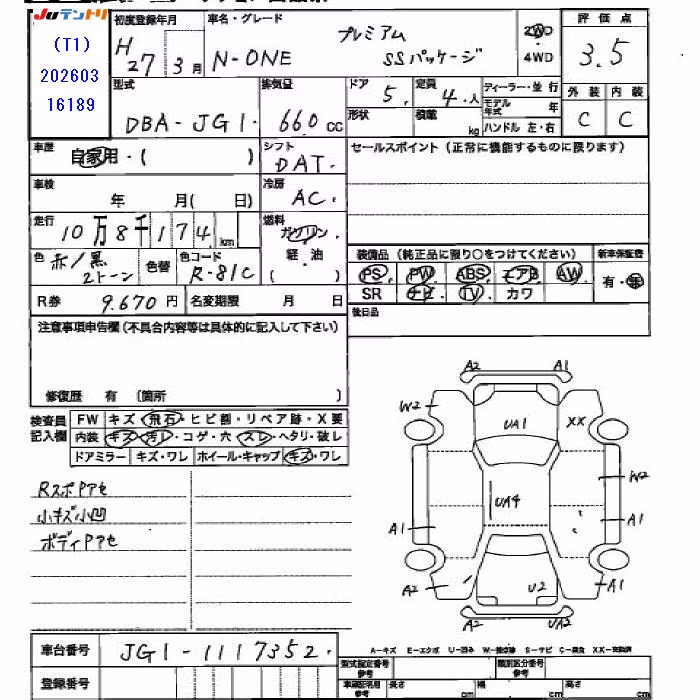 JUテントリ
(T1)
202603
16189
初度登録年月
H 27 3月
車名・グレード
N-ONE
プレミアム
SSパッケージ
2WD
4WD
評価点
3.5
型式
DBA-JG1.
排気量
660cc
ドア
5.
定員
4.人
ディーラー・並行
モデル年式 年
形状
積載 kg
ハンドル 左・右
外装 内装
C C
車歴
自家用・( )
シフト
DAT.
セールスポイント (正常に機能するものに限ります)
車検
年 月( 日)
冷房
AC.
走行
10万8千174km
燃料
ガソリン・
軽油
( )
色
赤/黒
2トーン
色替
色コード
R-81C
装備品 (純正品に限り○をつけてください)
新車保証書
PS PW ABS エアB AW
SR ナビ TV. カワ
有・無
R券 9.670円
名変期限 月 日
後日品
注意事項申告欄(不具合内容等は具体的に記入して下さい)
修復歴 有 〔箇所 〕
検査員
記入欄
FW キズ・飛石・ヒビ割・リペア跡・X要
内装 キズ・汚レ・コゲ・穴・スレ・ヘタリ・破レ
ドアミラー キズ・ワレ ホイール・キャップ キズ・ワレ
RスポPアセ
小キズ小凹
ボディPアセ
A2 A1
W2 UA1 XX
UA4 W2
A1 A1
A2 U2 A1
A2 UA2
車台番号
JG1-1117352.
登録番号
A-キズ E-エクボ U-凹み W-補修跡 S-サビ C-腐食 XX-交換済
型式指定番号
参考
類別区分番号
参考
車庫証明用
参考
長さ cm 幅 cm 高さ cm